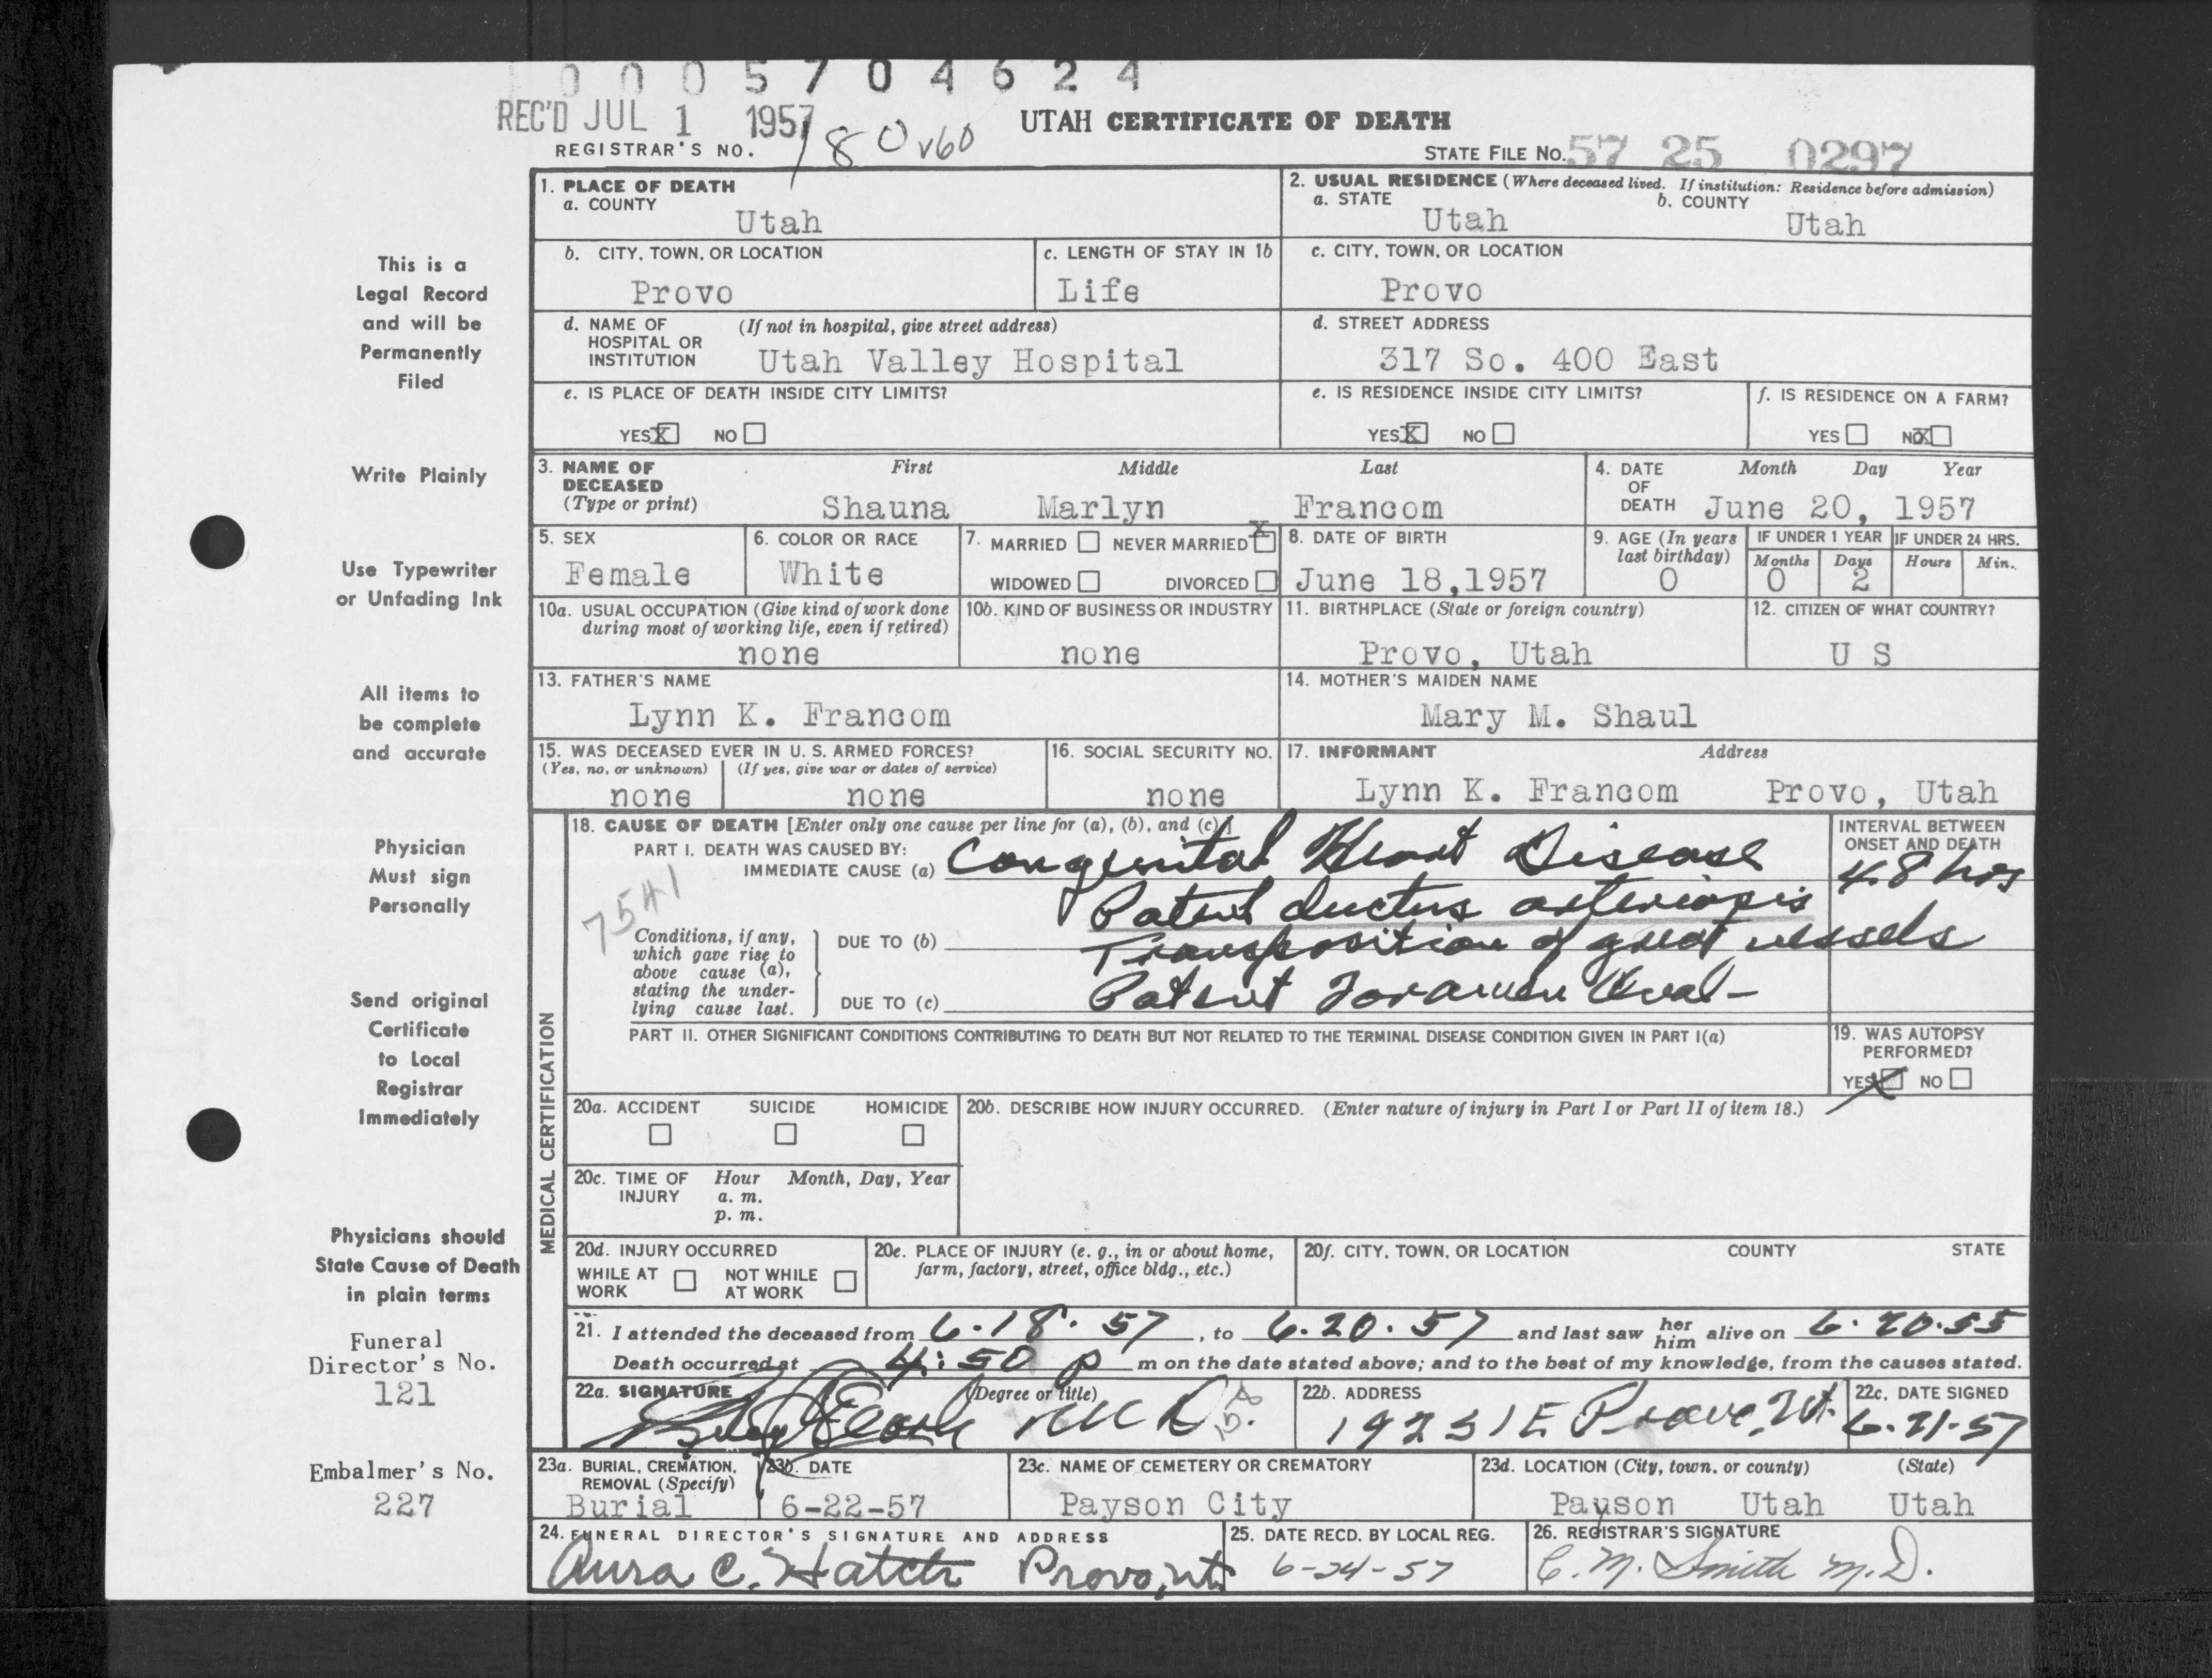 0 0 0 5 7 0 4 6 2 4
REC'D JUL 1 1957
UTAH CERTIFICATE OF DEATH
REGISTRAR'S NO. 180 v60
STATE FILE NO. 57 25 0297
1. PLACE OF DEATH
a. COUNTY
Utah
2. USUAL RESIDENCE (Where deceased lived. If institution: Residence before admission)
a. STATE b. COUNTY
Utah Utah
b. CITY, TOWN, OR LOCATION
Provo
c. LENGTH OF STAY IN 1b
Life
c. CITY, TOWN, OR LOCATION
Provo
d. NAME OF HOSPITAL OR INSTITUTION (If not in hospital, give street address)
Utah Valley Hospital
d. STREET ADDRESS
317 So. 400 East
e. IS PLACE OF DEATH INSIDE CITY LIMITS?
YES X NO
e. IS RESIDENCE INSIDE CITY LIMITS?
YES X NO
f. IS RESIDENCE ON A FARM?
YES NO X
3. NAME OF DECEASED (Type or print)
First Middle Last
Shauna Marlyn Francom
4. DATE OF DEATH Month Day Year
June 20, 1957
5. SEX
Female
6. COLOR OR RACE
White
7. MARRIED NEVER MARRIED X
WIDOWED DIVORCED
8. DATE OF BIRTH
June 18,1957
9. AGE (In years last birthday)
0
IF UNDER 1 YEAR IF UNDER 24 HRS.
Months Days Hours Min.
0 2
10a. USUAL OCCUPATION (Give kind of work done during most of working life, even if retired)
none
10b. KIND OF BUSINESS OR INDUSTRY
none
11. BIRTHPLACE (State or foreign country)
Provo, Utah
12. CITIZEN OF WHAT COUNTRY?
U S
13. FATHER'S NAME
Lynn K. Francom
14. MOTHER'S MAIDEN NAME
Mary M. Shaul
15. WAS DECEASED EVER IN U. S. ARMED FORCES?
(Yes, no, or unknown) (If yes, give war or dates of service)
none none
16. SOCIAL SECURITY NO.
none
17. INFORMANT Address
Lynn K. Francom Provo, Utah
MEDICAL CERTIFICATION
18. CAUSE OF DEATH [Enter only one cause per line for (a), (b), and (c)]
PART I. DEATH WAS CAUSED BY:
IMMEDIATE CAUSE (a) Congenital Heart Disease
INTERVAL BETWEEN ONSET AND DEATH
48 hrs
7541
Patent ductus arteriosis
Conditions, if any, which gave rise to above cause (a), stating the underlying cause last.
DUE TO (b) Transposition of great vessels
DUE TO (c) Patent Foramen Oval-
PART II. OTHER SIGNIFICANT CONDITIONS CONTRIBUTING TO DEATH BUT NOT RELATED TO THE TERMINAL DISEASE CONDITION GIVEN IN PART I(a)
19. WAS AUTOPSY PERFORMED?
YES X NO
20a. ACCIDENT SUICIDE HOMICIDE
20b. DESCRIBE HOW INJURY OCCURRED. (Enter nature of injury in Part I or Part II of item 18.)
20c. TIME OF INJURY Hour Month, Day, Year
a. m.
p. m.
20d. INJURY OCCURRED
WHILE AT WORK NOT WHILE AT WORK
20e. PLACE OF INJURY (e. g., in or about home, farm, factory, street, office bldg., etc.)
20f. CITY, TOWN, OR LOCATION COUNTY STATE
21. I attended the deceased from 6-18-57, to 6-20-57 and last saw her him alive on 6-20-55
Death occurred at 4:50 p m on the date stated above; and to the best of my knowledge, from the causes stated.
22a. SIGNATURE (Degree or title)
22b. ADDRESS
22c. DATE SIGNED
6-21-57
23a. BURIAL, CREMATION, REMOVAL (Specify)
Burial
23b. DATE
6-22-57
23c. NAME OF CEMETERY OR CREMATORY
Payson City
23d. LOCATION (City, town, or county) (State)
Payson Utah Utah
24. FUNERAL DIRECTOR'S SIGNATURE AND ADDRESS
Aura C. Hatch Provo, Ut
25. DATE RECD. BY LOCAL REG.
6-24-57
26. REGISTRAR'S SIGNATURE
C. M. Smith M.D.
This is a
Legal Record
and will be
Permanently
Filed
Write Plainly
Use Typewriter
or Unfading Ink
All items to
be complete
and accurate
Physician
Must sign
Personally
Send original
Certificate
to Local
Registrar
Immediately
Physicians should
State Cause of Death
in plain terms
Funeral
Director's No.
121
Embalmer's No.
227